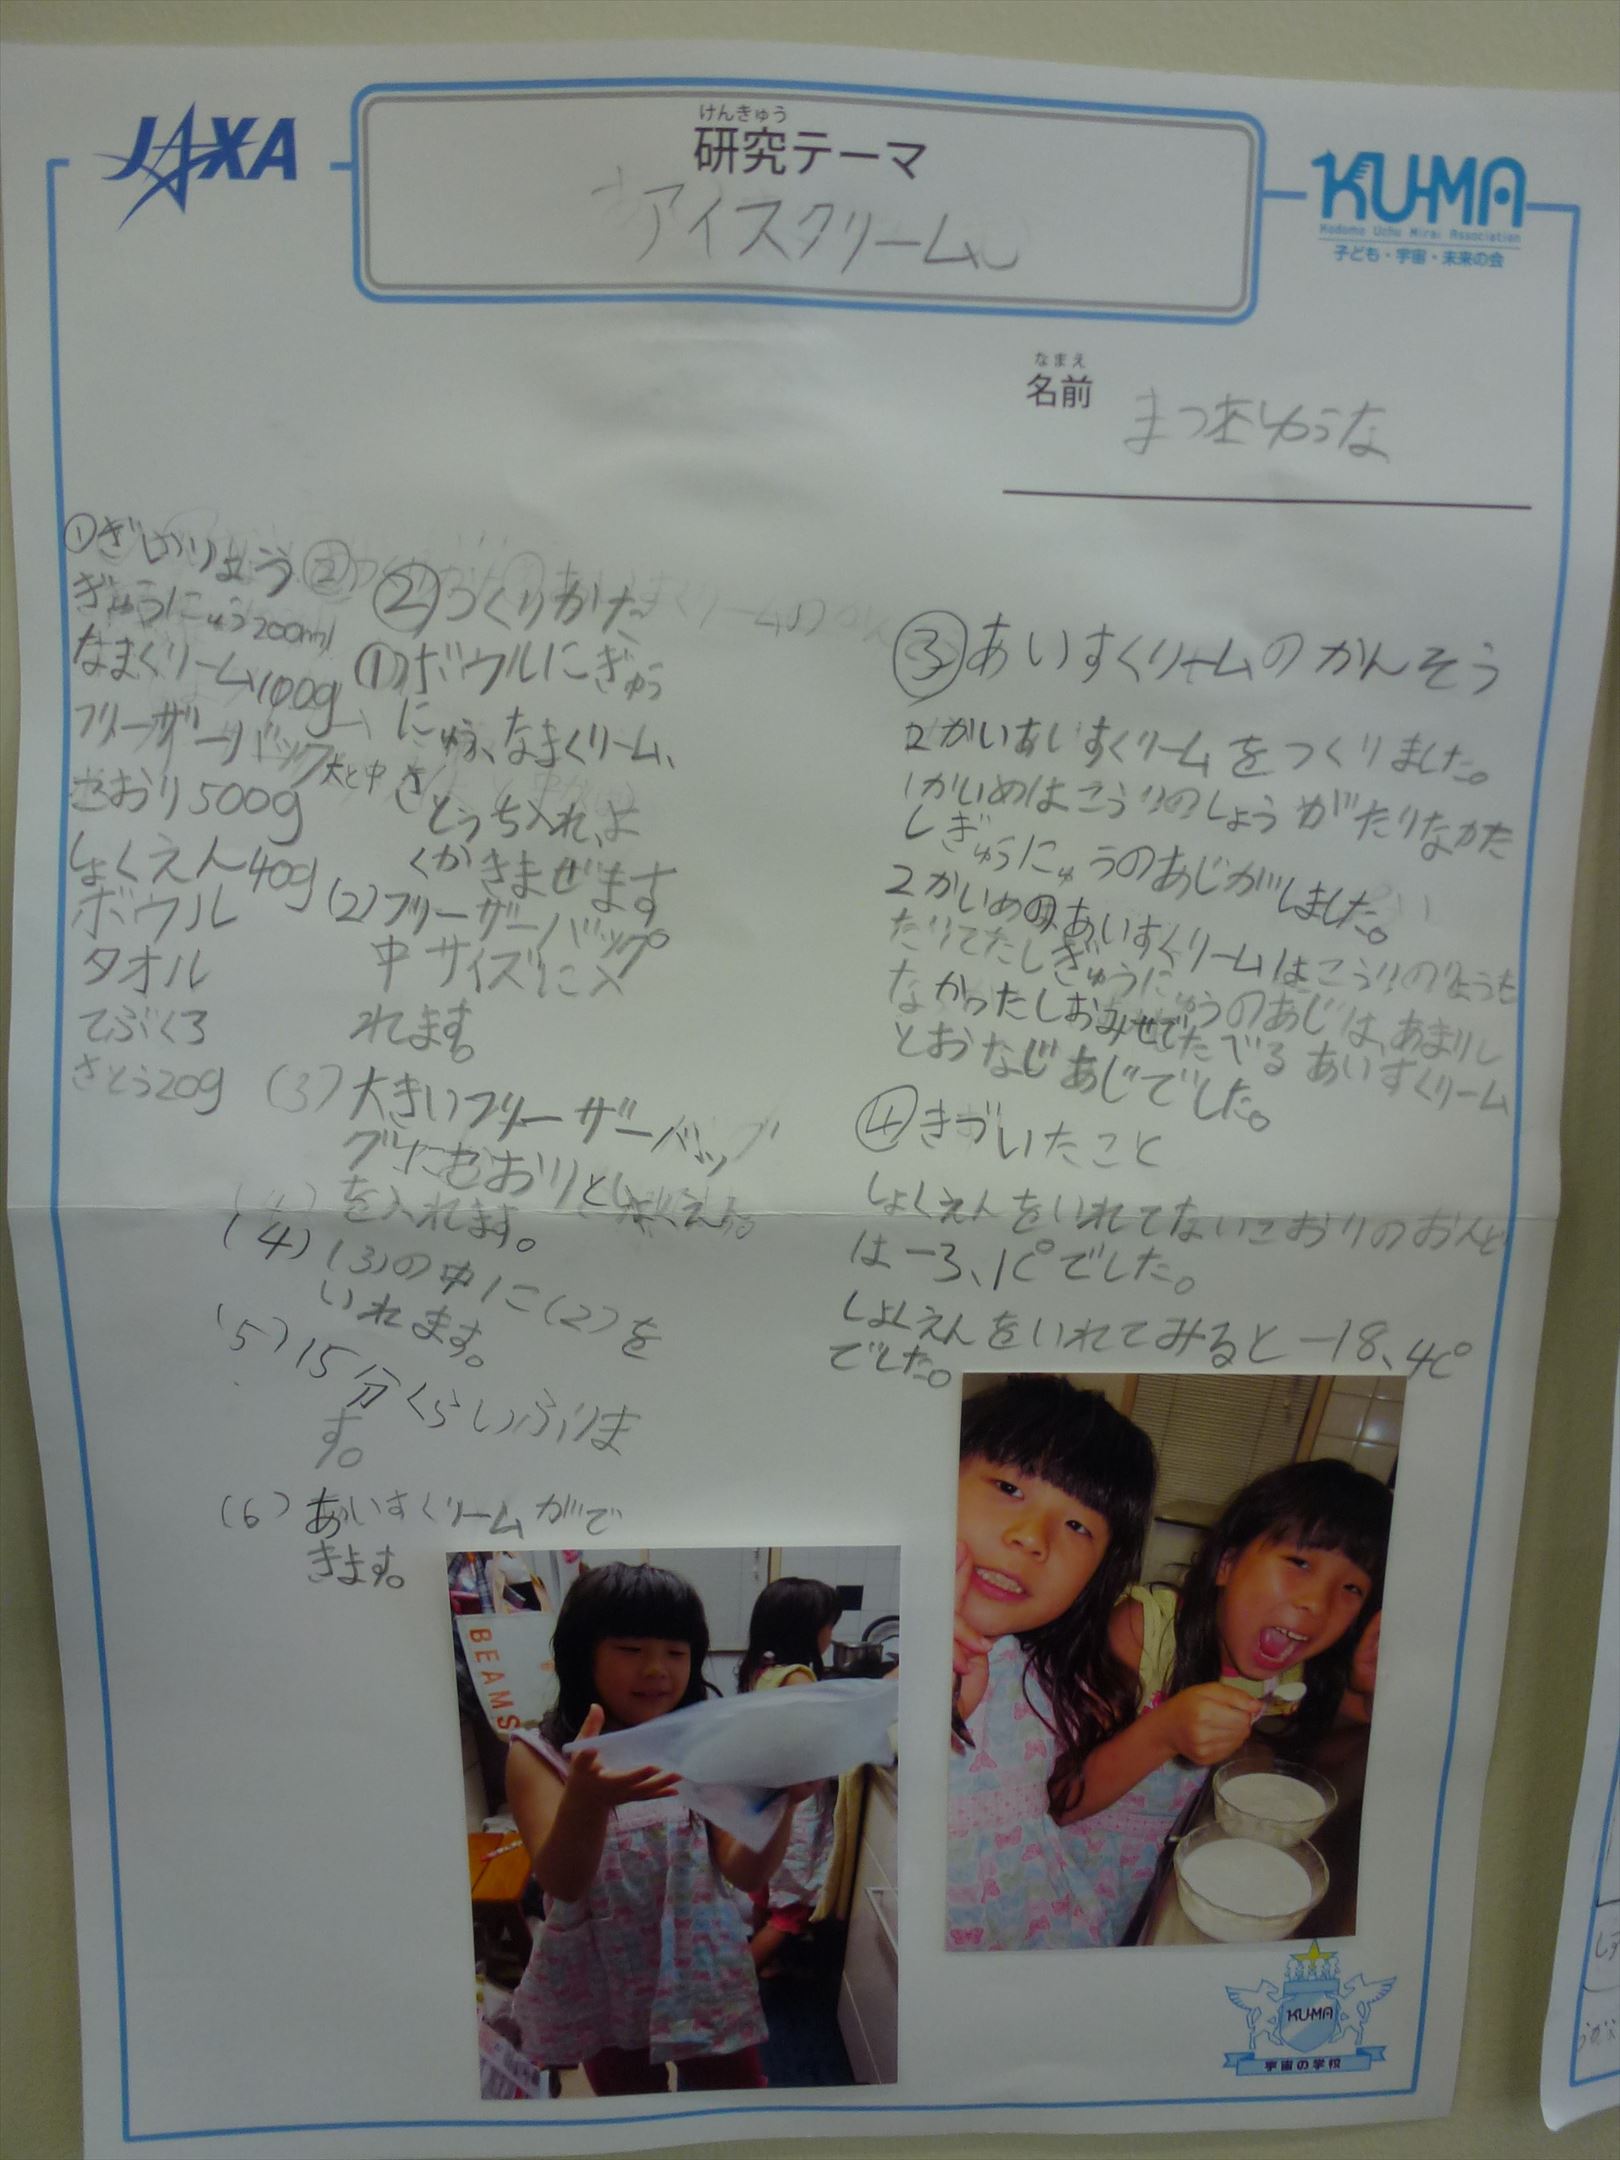 JAXA
けんきゅう
研究テーマ
アイスクリーム
KU-MA
Kodomo Uchu Mirai Association
子ども・宇宙・未来の会
なまえ
名前
まつをゆうな
①ざいりょう
ぎゅうにゅう200ml
なまくリーム100g
フリーザーバック大と中
こおり500g
しょくえん40g
ボウル
タオル
てぶくろ
さとう20g
②つくりかた
(1)ボウルにぎゅう
にゅう、なまくリーム、
さとうち入れ、よ
くかきまぜます
(2)フリーザーバッグ
中サイズに入
れます。
(3)大きいフリーザーバッ
グにこおりとしょくえん
を入れます。
(4)(3)の中に(2)を
いれます。
(5)15分くらいふりま
す。
(6)あいすくリームがで
きます。
③あいすくリームのかんそう
2かいあいすくリームをつくりました。
1かいめはこうりのしょうがたりなかた
しぎゅうにゅうのあじがしました。
2かいめのあいすくリームはこうりのりょうも
たりてたしぎゅうにゅうのあじは、あまりし
なかったしおみせでたべるあいすくリーム
とおなじあじでした。
④きづいたこと
しょくえんをいれてないこおりのおんど
は-3、1C°でした。
しょくえんをいれてみると-18、4C°
でした。
BEAMS
KU-MA
宇宙の学校